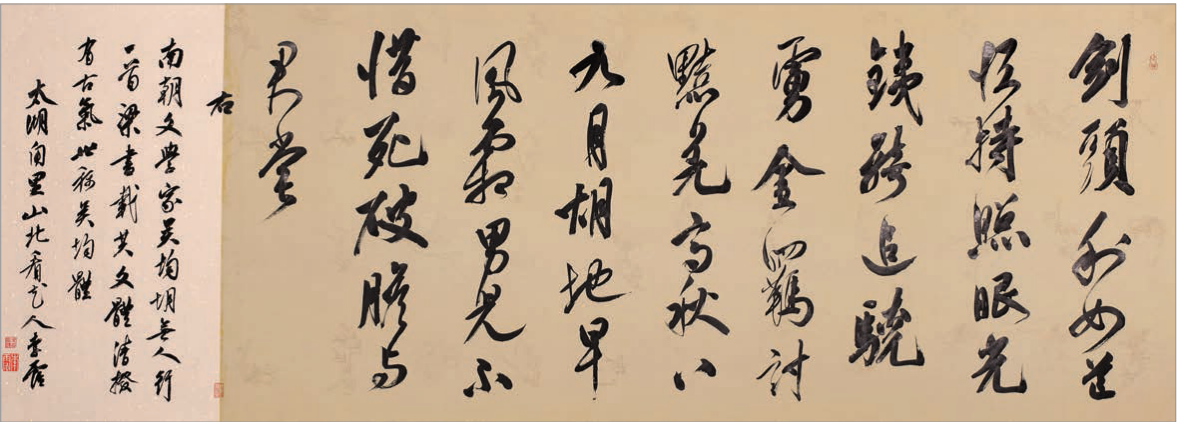 劍頭利如芒
恒持照眼光
銕騎追驍
虜金羈討
黠羌高秋八
九月胡地早
風霜男兒不
惜死破膽与
君嘗
右
南朝文學家吴均胡无人行
一首梁書載其文體清拔
有古氣世稱吴均體
太湖甪里山北看云人李